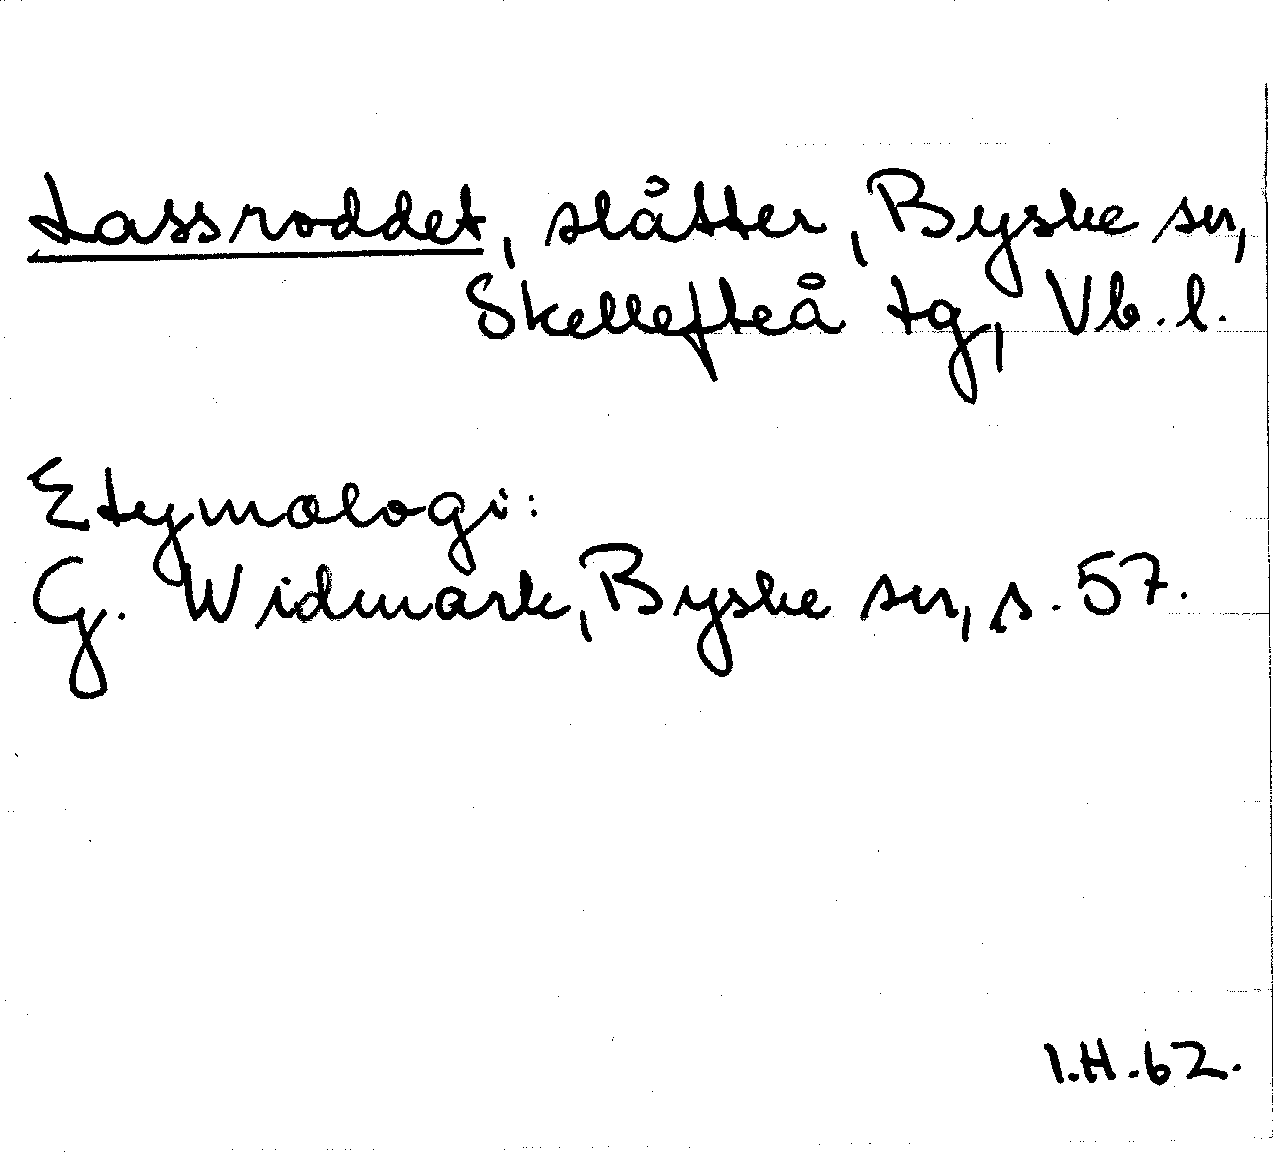 tassroddet, slåtter, Byske sn,
Skellefteå tg, Vb. l.
Etymologi:
G. Widmark, Byske sn, s. 57.
I.H.62.